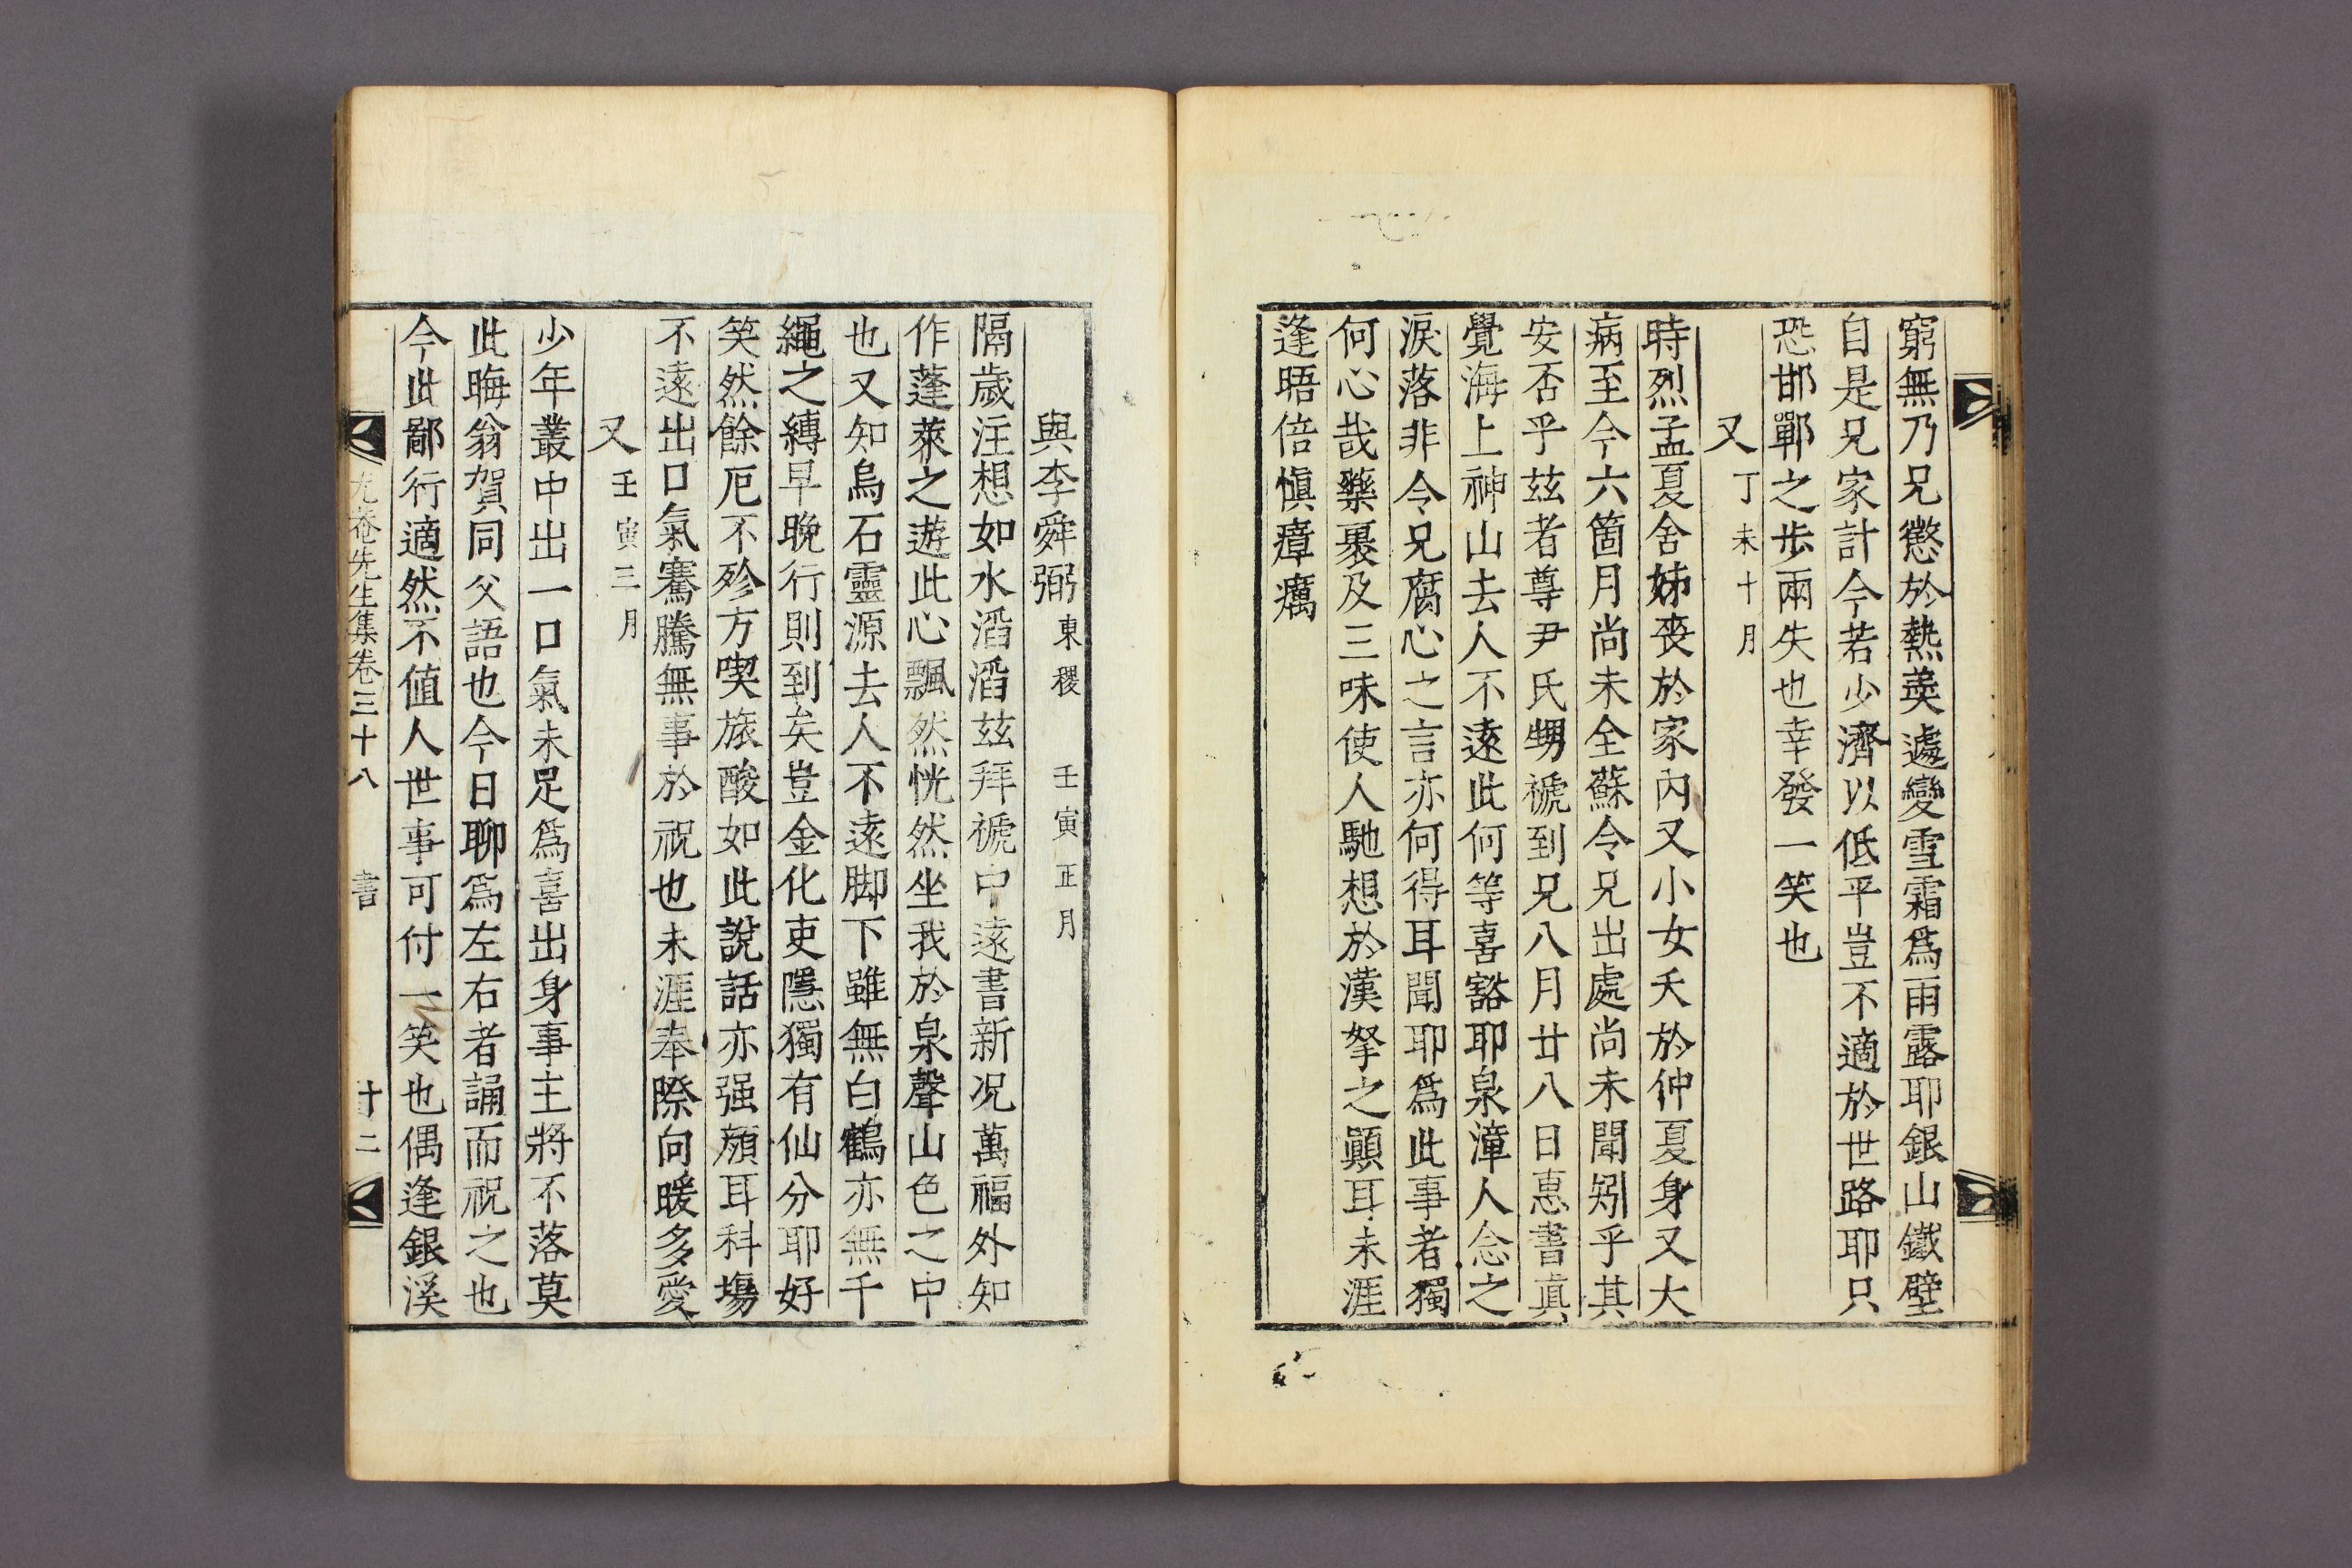 窮無乃兄懲於熱羹遽變雪霜爲雨露耶銀山鐵壁
自是兄家計今若少濟以低平豈不適於世路耶只
恐邯鄲之步兩失也幸發一笑也
又丁未十月
時烈孟夏舍姊喪於家內又小女夭於仲夏身又大
病至今六箇月尚未全蘇令兄出處尚未聞矧乎其
安否乎玆者尊尹氏甥褫到兄八月廿八日惠書眞
覺海上神山去人不遠此何等喜豁耶泉漳人念之
淚落非令兄腐心之言亦何得耳聞耶爲此事者獨
何心哉藥裹及三味使人馳想於漢拏之顚耳未涯
逢晤倍愼瘴癘
與李舜弼東稷 壬寅正月
隔歲注想如水滔滔玆拜褫中遠書新况萬福外知
作蓬萊之遊此心飄然恍然坐我於泉聲山色之中
也又知烏石靈源去人不遠脚下雖無白鶴亦無千
繩之縛早晚行則到矣豈金化吏隱獨有仙分耶好
笑然餘厄不殄方喫旅酸如此說話亦强顔耳科場
不遠出口氣騫騰無事於祝也未涯奉際向暖多愛
又壬寅三月
少年叢中出一口氣未足爲喜出身事主將不落莫
此晦翁賀同父語也今日聊爲左右者誦而祝之也
今此鄙行適然不值人世事可付一笑也偶逢銀溪
尤菴先生集卷三十八 書 十二